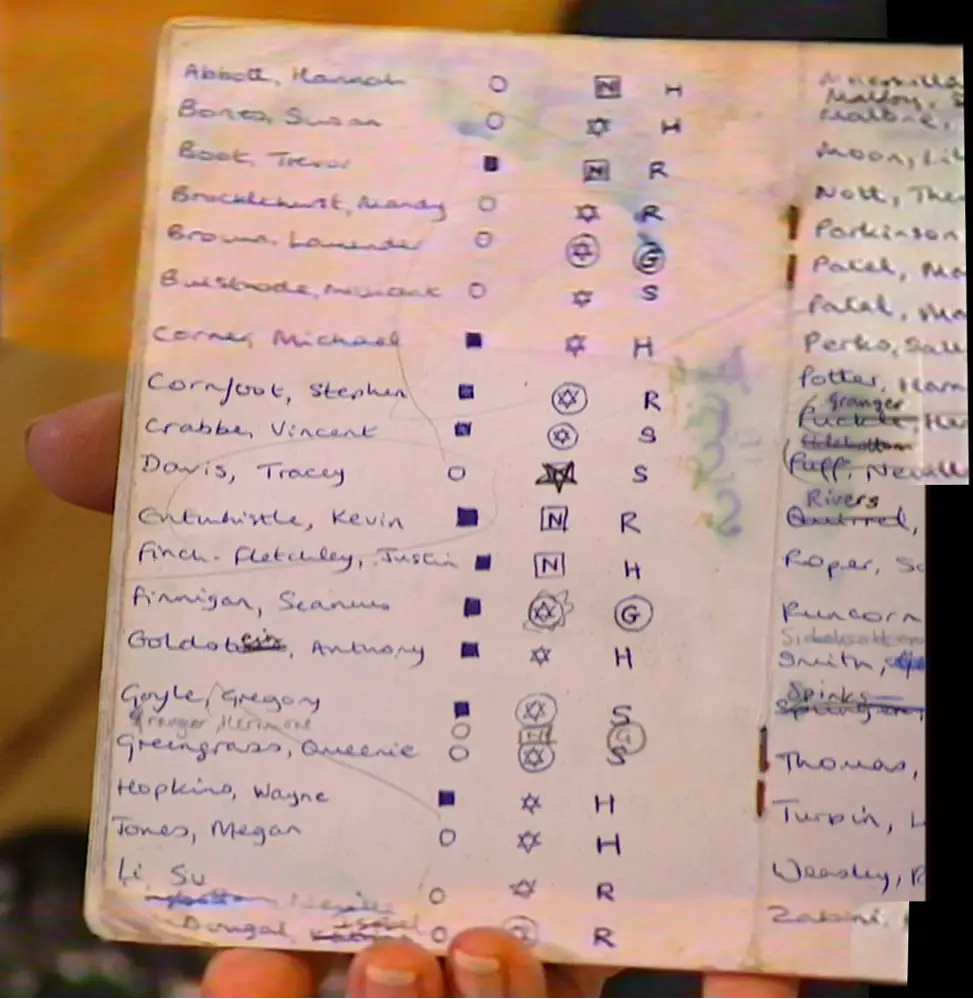 Abbott, Hannah N H
Bones, Susan H
Boot, Trevor N R
Brocklehurst, Mandy R
Brown, Lavender G
Bulstrode, Millicent S
Corner, Michael H
Cornfoot, Stephen R
Crabbe, Vincent S
Davis, Tracey S
Entwhistle, Kevin N R
Finch-Fletchley, Justin N H
Finnigan, Seamus G
Goldstein, Anthony H
Goyle, Gregory S
Granger, Hermione G
Greengrass, Queenie S
Hopkins, Wayne H
Jones, Megan H
Li, Su R
Neville
Dougal, R
Malfoy,
Malone,
Moon, Li
Nott, The
Parkinson
Patel, Ma
Patel, Ma
Perks, Sall
Potter, Harr
Granger
Puckle, Her
Sidebottom
Puff, Nevill
Rivers
Quirrel,
Roper, So
Runcorn
Sidebottom
Smith,
Spinks
Spungen,
Thomas,
Turpin, L
Weasley, R
Zabini,